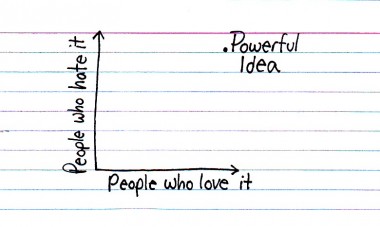 Powerful
Idea
People who hate it
People who love it